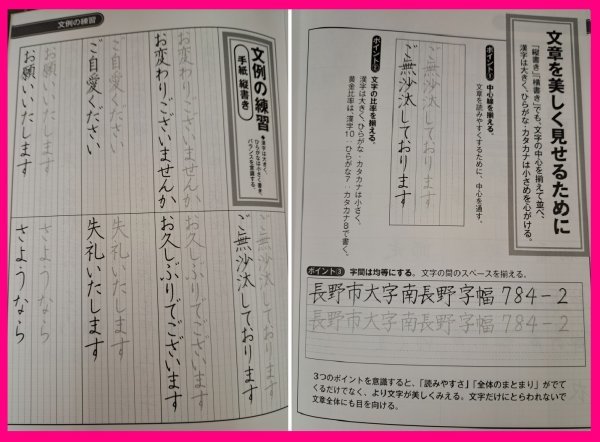 文章を美しく見せるために
「縦書き」「横書き」でも、文字の中心を揃えて並べ、
漢字は大きく、ひらがな・カタカナは小さめを心がける。
ポイント1
中心線を揃える。
文章を読みやすくするために、中心を通す。
ご無沙汰しております
ご無沙汰しております
ポイント2
文字の比率を揃える。
漢字は大きく、ひらがな・カタカナは小さく。
黄金比率は、漢字10:ひらがな7:カタカナ8で書く。
ポイント3 字間は均等にする。文字の間のスペースを揃える。
長野市大字南長野字幅784-2
長野市大字南長野字幅784-2
3つのポイントを意識すると、「読みやすさ」「全体のまとまり」がでて
くるだけでなく、より文字が美しくみえる。文字だけにとらわれないで
文章全体にも目を向ける。
文例の練習
文例の練習
手紙 縦書き
◆漢字は大きく、
ひらがなは小さく書き、
バランスを意識する。
お変わりございませんか
お変わりございませんか
ご自愛ください
ご自愛ください
お願いいたします
お願いいたします
ご無沙汰しております
ご無沙汰しております
お久しぶりでございます
お久しぶりでございます
失礼いたします
失礼いたします
さようなら
さようなら